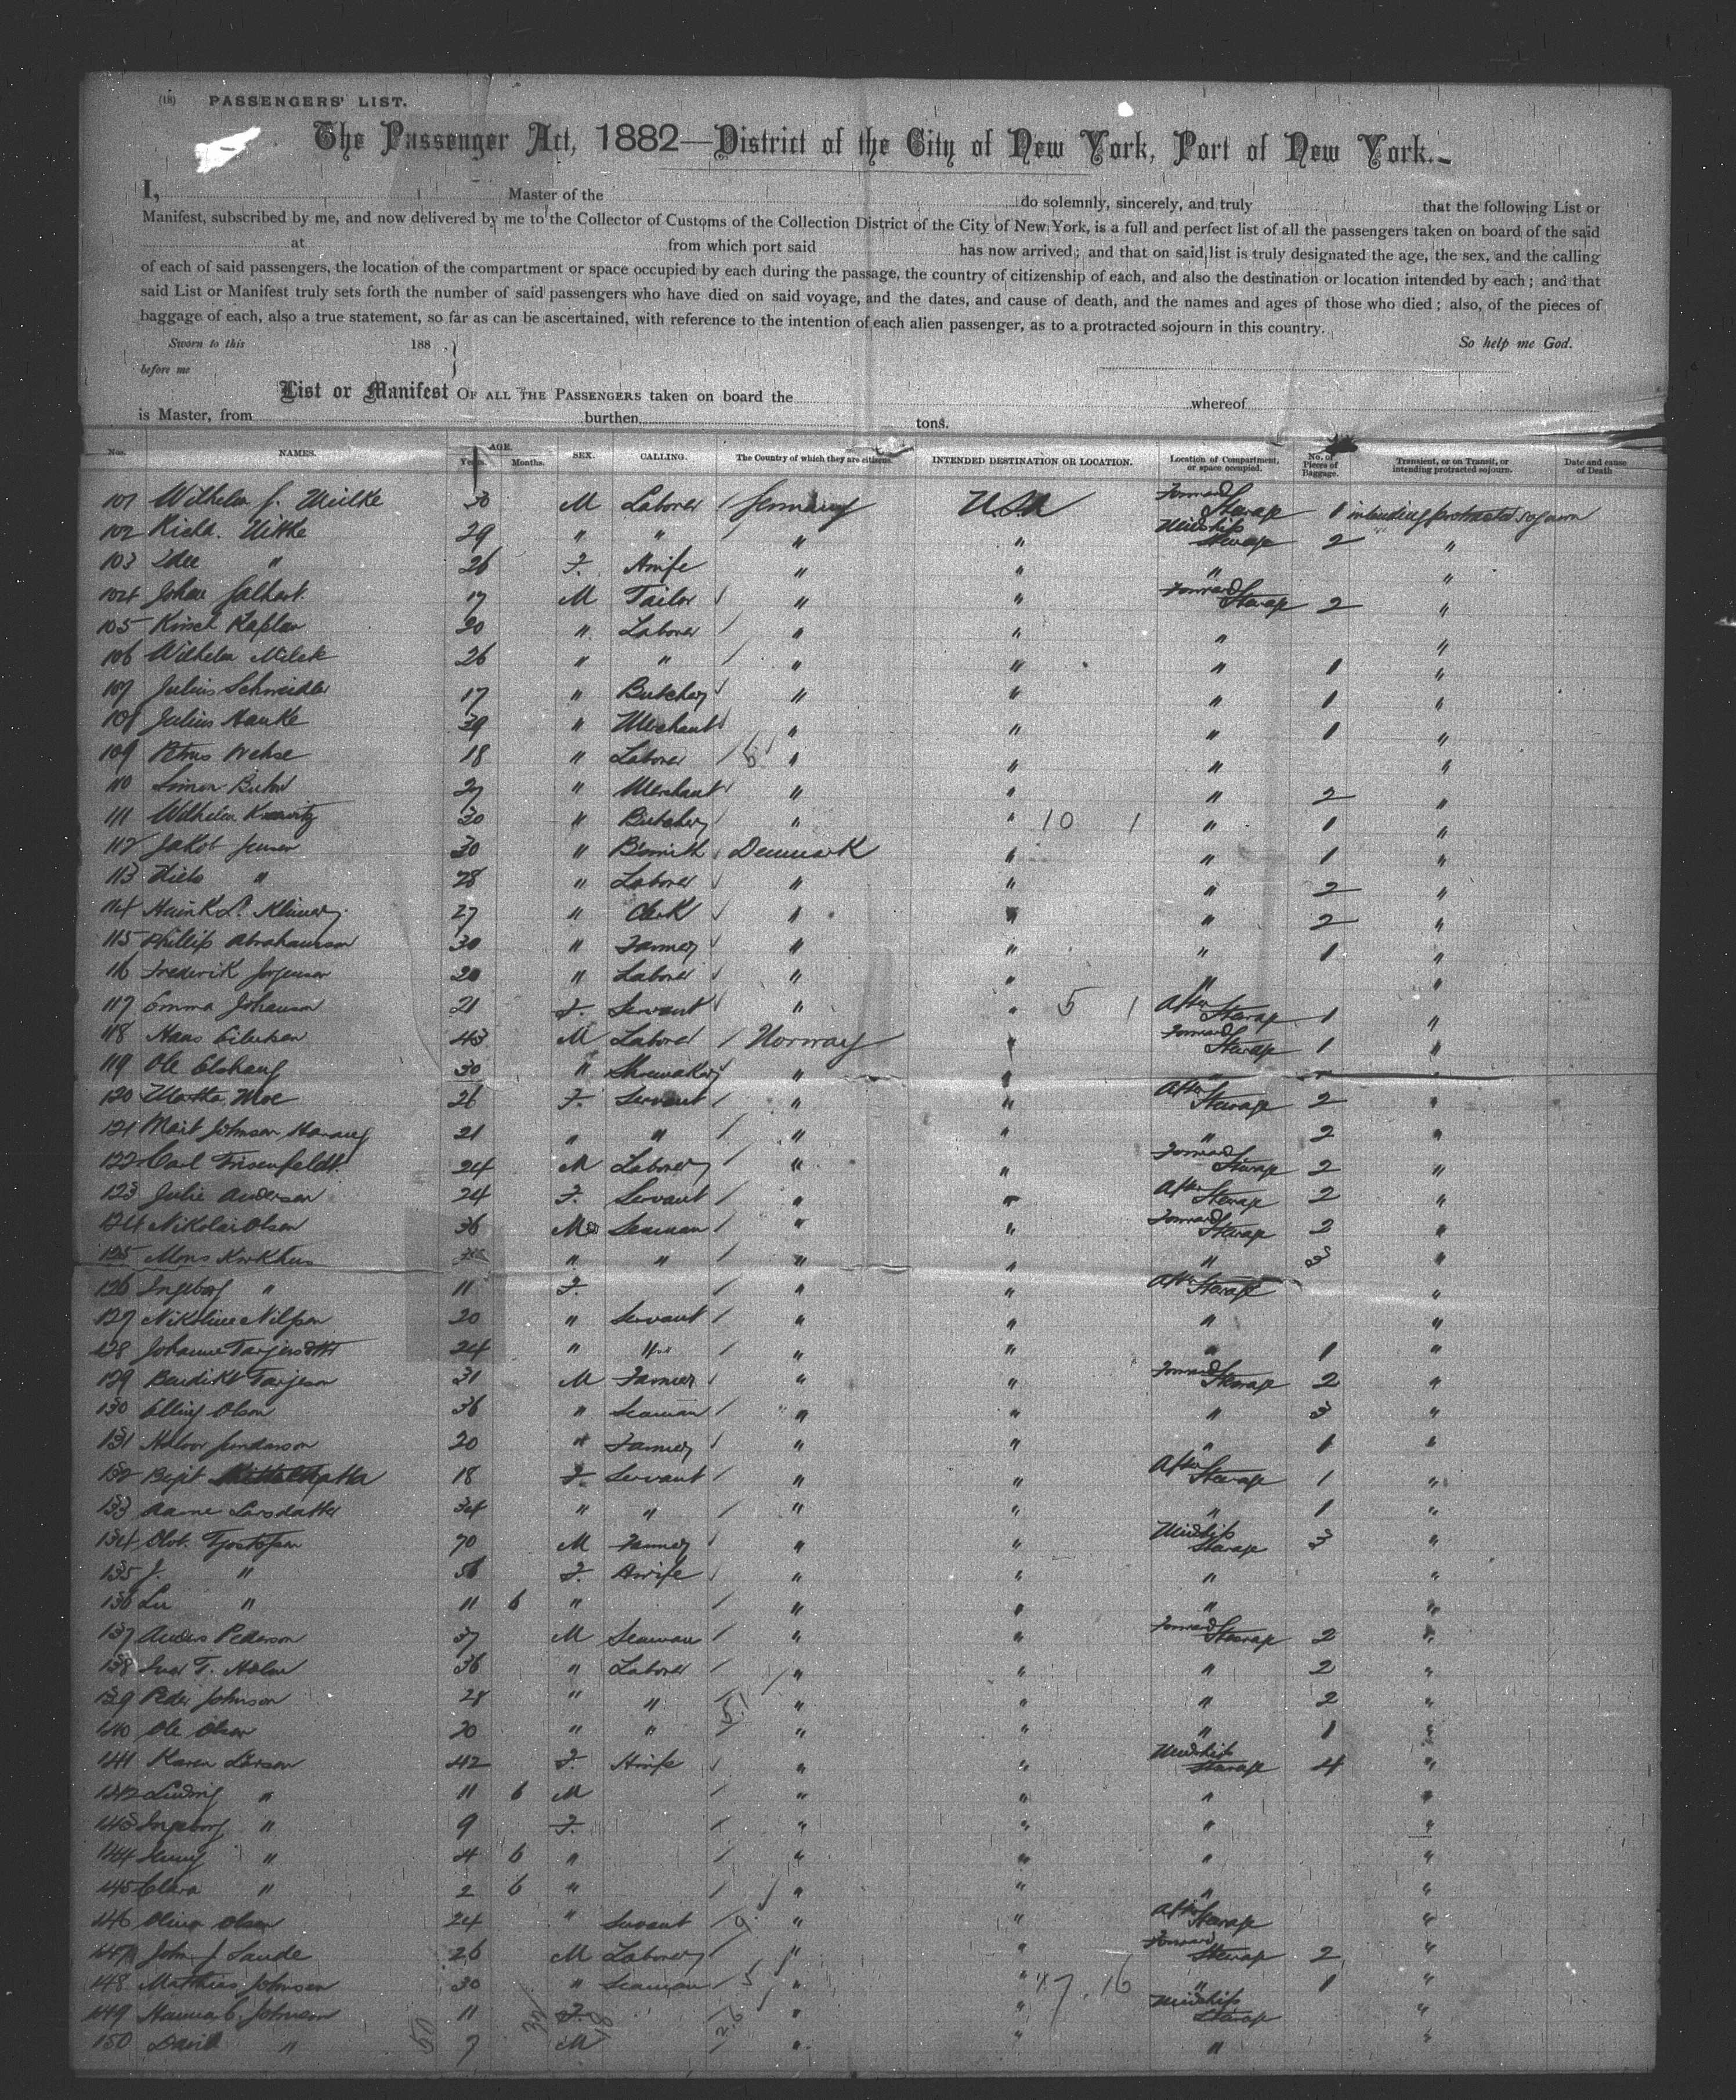 (18) PASSENGERS' LIST.
The Passenger Act, 1882—District of the City of New York, Port of New York.
I, Master of the do solemnly, sincerely, and truly that the following List or
Manifest, subscribed by me, and now delivered by me to the Collector of Customs of the Collection District of the City of New York, is a full and perfect list of all the passengers taken on board of the said
at from which port said has now arrived; and that on said list is truly designated the age, the sex, and the calling
of each of said passengers, the location of the compartment or space occupied by each during the passage, the country of citizenship of each, and also the destination or location intended by each; and that
said List or Manifest truly sets forth the number of said passengers who have died on said voyage, and the dates, and cause of death, and the names and ages of those who died; also, of the pieces of
baggage of each, also a true statement, so far as can be ascertained, with reference to the intention of each alien passenger, as to a protracted sojourn in this country.
Sworn to this 188 So help me God.
before me
List or Manifest OF ALL THE PASSENGERS taken on board the whereof
is Master, from burthen tons.
Nos. NAMES. AGE. Years. Months. SEX. CALLING. The Country of which they are citizens. INTENDED DESTINATION OR LOCATION. Location of Compartment, or space occupied. No. of Pieces of Baggage. Transient, or on Transit, or intending protracted sojourn. Date and cause of Death
101 Wilhelm 30 M Laborer Germany U.S.A Forward Steerage 1 intending protracted sojourn
102 29 " " " " Midship Steerage 2 "
103 " 26 F. " " " "
104 Johann 17 M Tailor " " Forward Steerage 2 "
105 Kaplan 20 " Laborer " " " "
106 Wilhelm 26 " " " " " 1 "
107 Julius Schneidler 17 " Butcher " " " 1 "
108 Julius Hanke 39 " Merchant " " " 1 "
109 Petrus Wehse 18 " Laborer " " " "
110 Simon 27 " Merchant " " " 2 "
111 Wilhelm 30 " Butcher " " 10 1 " 1 "
112 Jakob Jensen 30 " Denmark " " 1 "
113 Niels " 28 " Laborer " " " 2 "
114 27 " Clerk " " " 2 "
115 Phillip Abrahamson 30 " Farmer " " " 1 "
116 Frederik Jorgensen 20 " Laborer " " " "
117 Emma Johanson 21 F. Servant " " 5 1 After Steerage 1 "
118 43 M Laborer Norway " Forward Steerage 1 "
119 Ole 30 " Shoemaker " " " "
120 Martha Moe 26 F. Servant " " After Steerage 2 "
121 Johnson 21 " " " " " 2 "
122 Carl Frisenfeldt 24 M Laborer " " Forward Steerage 2 "
123 Julie Anderson 24 F. Servant " " After Steerage 2 "
124 Nikolai Olsen 36 M Seaman " " Forward Steerage 2 "
125 Mons Kirkhus " " " " " 3 "
126 Ingeborg " 11 F. " " After Steerage "
127 Nikoline Nilson 20 " Servant " " " "
128 Johanne 24 " " " " " 1 "
129 Bendikt Tarjeson 31 M Farmer " " Forward Steerage 2 "
130 Elling Olson 36 " Seaman " " " 3 "
131 Halvor 20 " Farmer " " " 1 "
132 18 F. Servant " " After Steerage 1 "
133 Larsdatter 34 " " " " " 1 "
134 70 M Farmer " " Midship Steerage 3 "
135 J. " 56 F. " " " "
136 " 11 6 " " " " "
137 Anders Pederson 37 M Seaman " " Forward Steerage 2 "
138 36 " Laborer " " " 2 "
139 Peder Johnson 28 " " " " " 2 "
140 Ole Olson 20 " " " " " 1 "
141 Karen Larson 42 F. " " Midship Steerage 4 "
142 Ludvig " 11 6 M " " " "
143 Ingeborg " 9 F. " " " "
144 Jenny " 4 6 " " " " "
145 Clara " 2 6 " " " " "
146 Olsen 24 " Servant " " After Steerage "
147 John J. 26 M Laborer " " Forward Steerage 2 "
148 Matthias Johnson 30 " Seaman " " 47. 16 " 1 "
149 Hanna C. Johnson 11 F. " " Midship Steerage "
150 David " 7 M " " " "